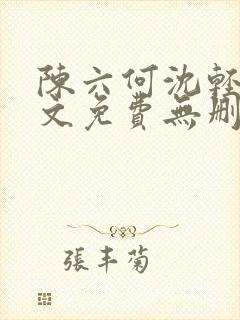 陳六何沈輕
文免費無刪
張丰菊